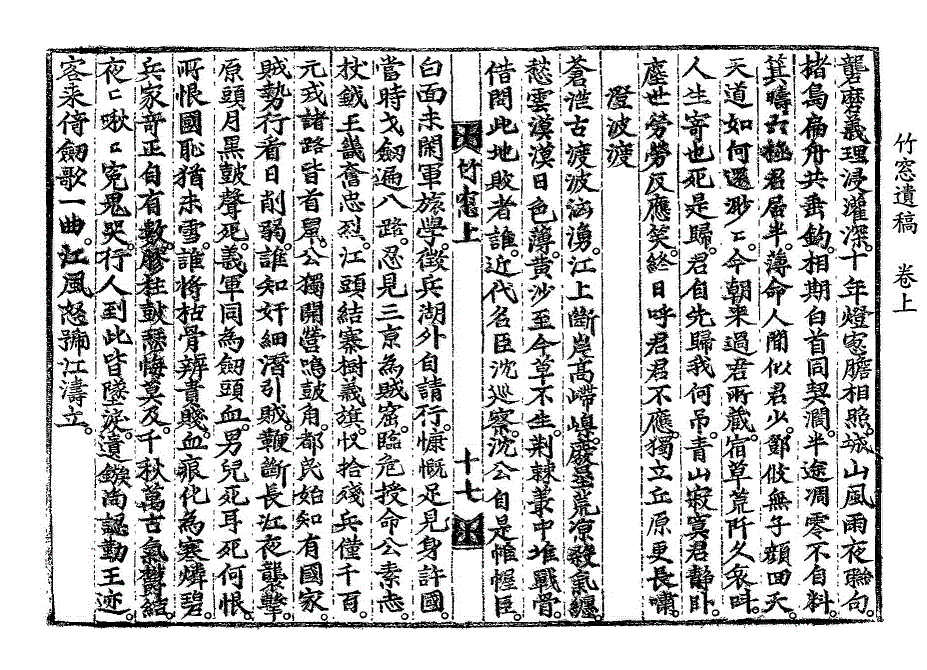 竹窓遺稿 卷上
礱磨義理浸灌深十年燈窓膽相照城山風雨夜聯句
渚島扁舟共垂釣相期白首同契濶半途凋零不自料
箕疇六極君居半薄命人間似君少鄧攸無子顔回夭
天道如何還渺〻今朝来過君所藏宿草荒阡久哀呌
人生寄也死是歸君自先歸我何吊青山寂寞君静卧
塵世勞勞反應笑終日呼君君不應獨立丘原更長嘯
澄波渡
蒼茫古渡波洶湧江上斷岸高嵽嵲廢壘荒凉殺氣纏
愁雲漠漠日色薄黄沙至今草不生荆棘叢中堆戰骨
借問此地敗者誰近代名臣沈巡察沈公自是帷幄臣
竹窓上
十七
白面未閑軍旅學徵兵湖外自請行慷慨足見身許國
當時戈劒遍八路忍見三京為賊窟臨危授命公素志
杖鉞王畿奮忠烈江頭結寨樹義旗收拾殘兵僅千百
元戎諸路皆首鼠公獨開營鳴鼓角都民始知有國家
賊勢行看日削弱誰知奸細潛引賊鞭斷長江夜襲擊
原頭月黒皷聲死義軍同為劒頭血男兒死耳死何恨
所恨國恥猶未雪誰將枯骨辨貴賤血痕化為寒燐碧
兵家奇正自有數膠柱鼓瑟悔莫及千秋萬古氣鬱結
夜〻啾〻寃鬼哭行人到此皆墜淚遺鏃尚認勤王迹
客来倚劒歌一曲江風怒號江濤立